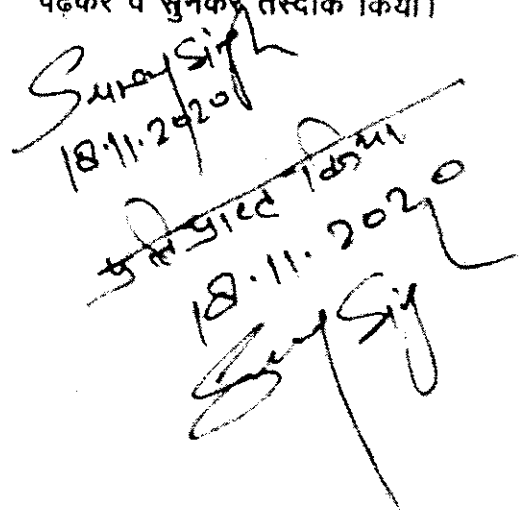 पढ़कर व सुनकर तस्दीक किया।
Suraj Singh
18.11.2020
प्रति प्राप्त किया
18.11.2020
Suraj Singh